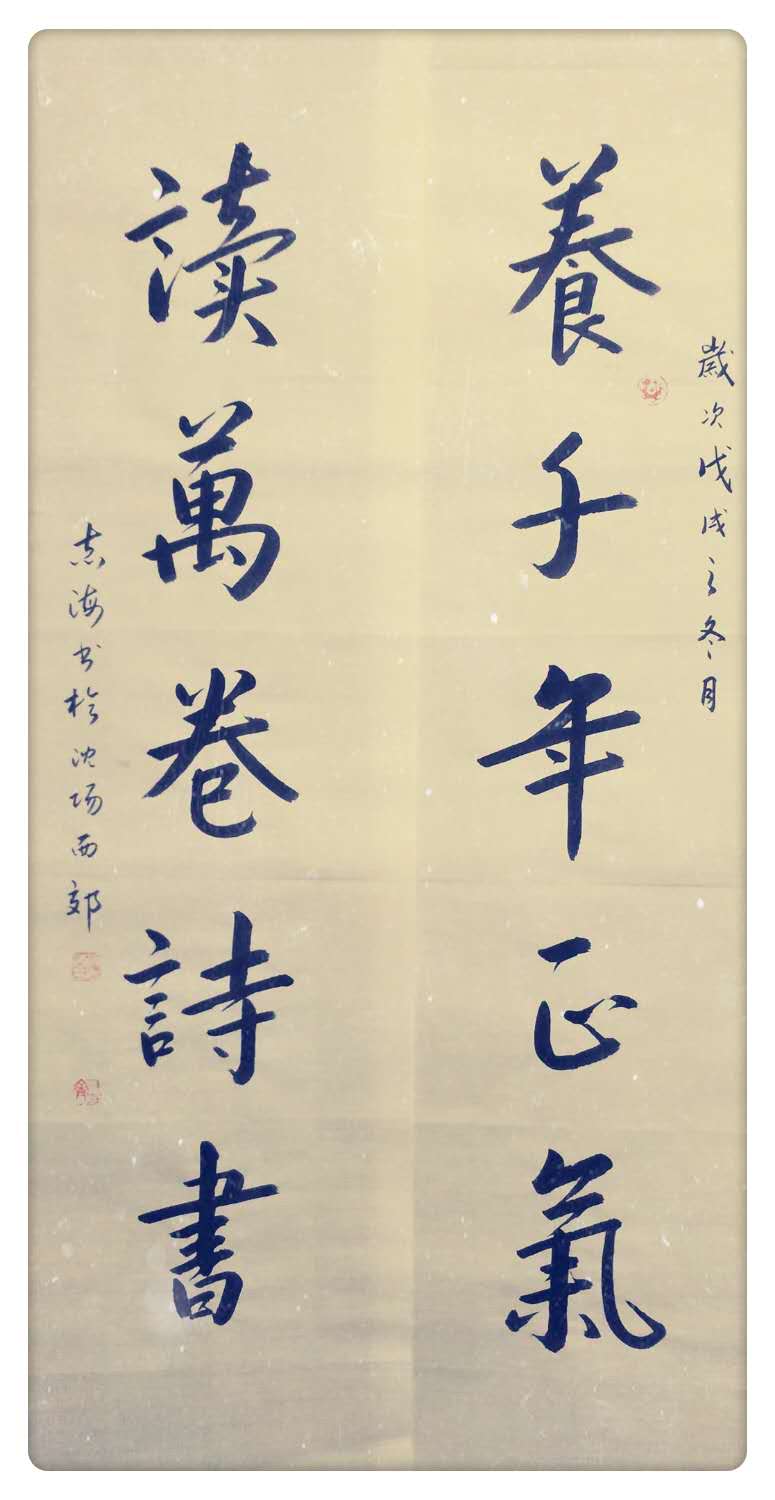 歲次戊戌之冬月
養千年正氣
讀萬卷詩書
志海书於沈场西郊